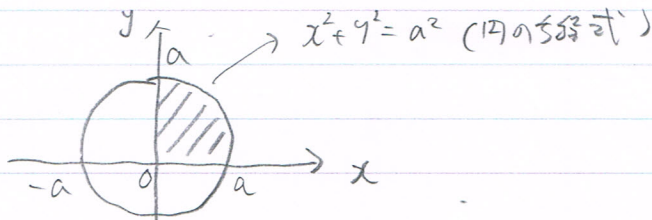 y
x²+y²=a² (円の方程式)
a
-a 0 a x